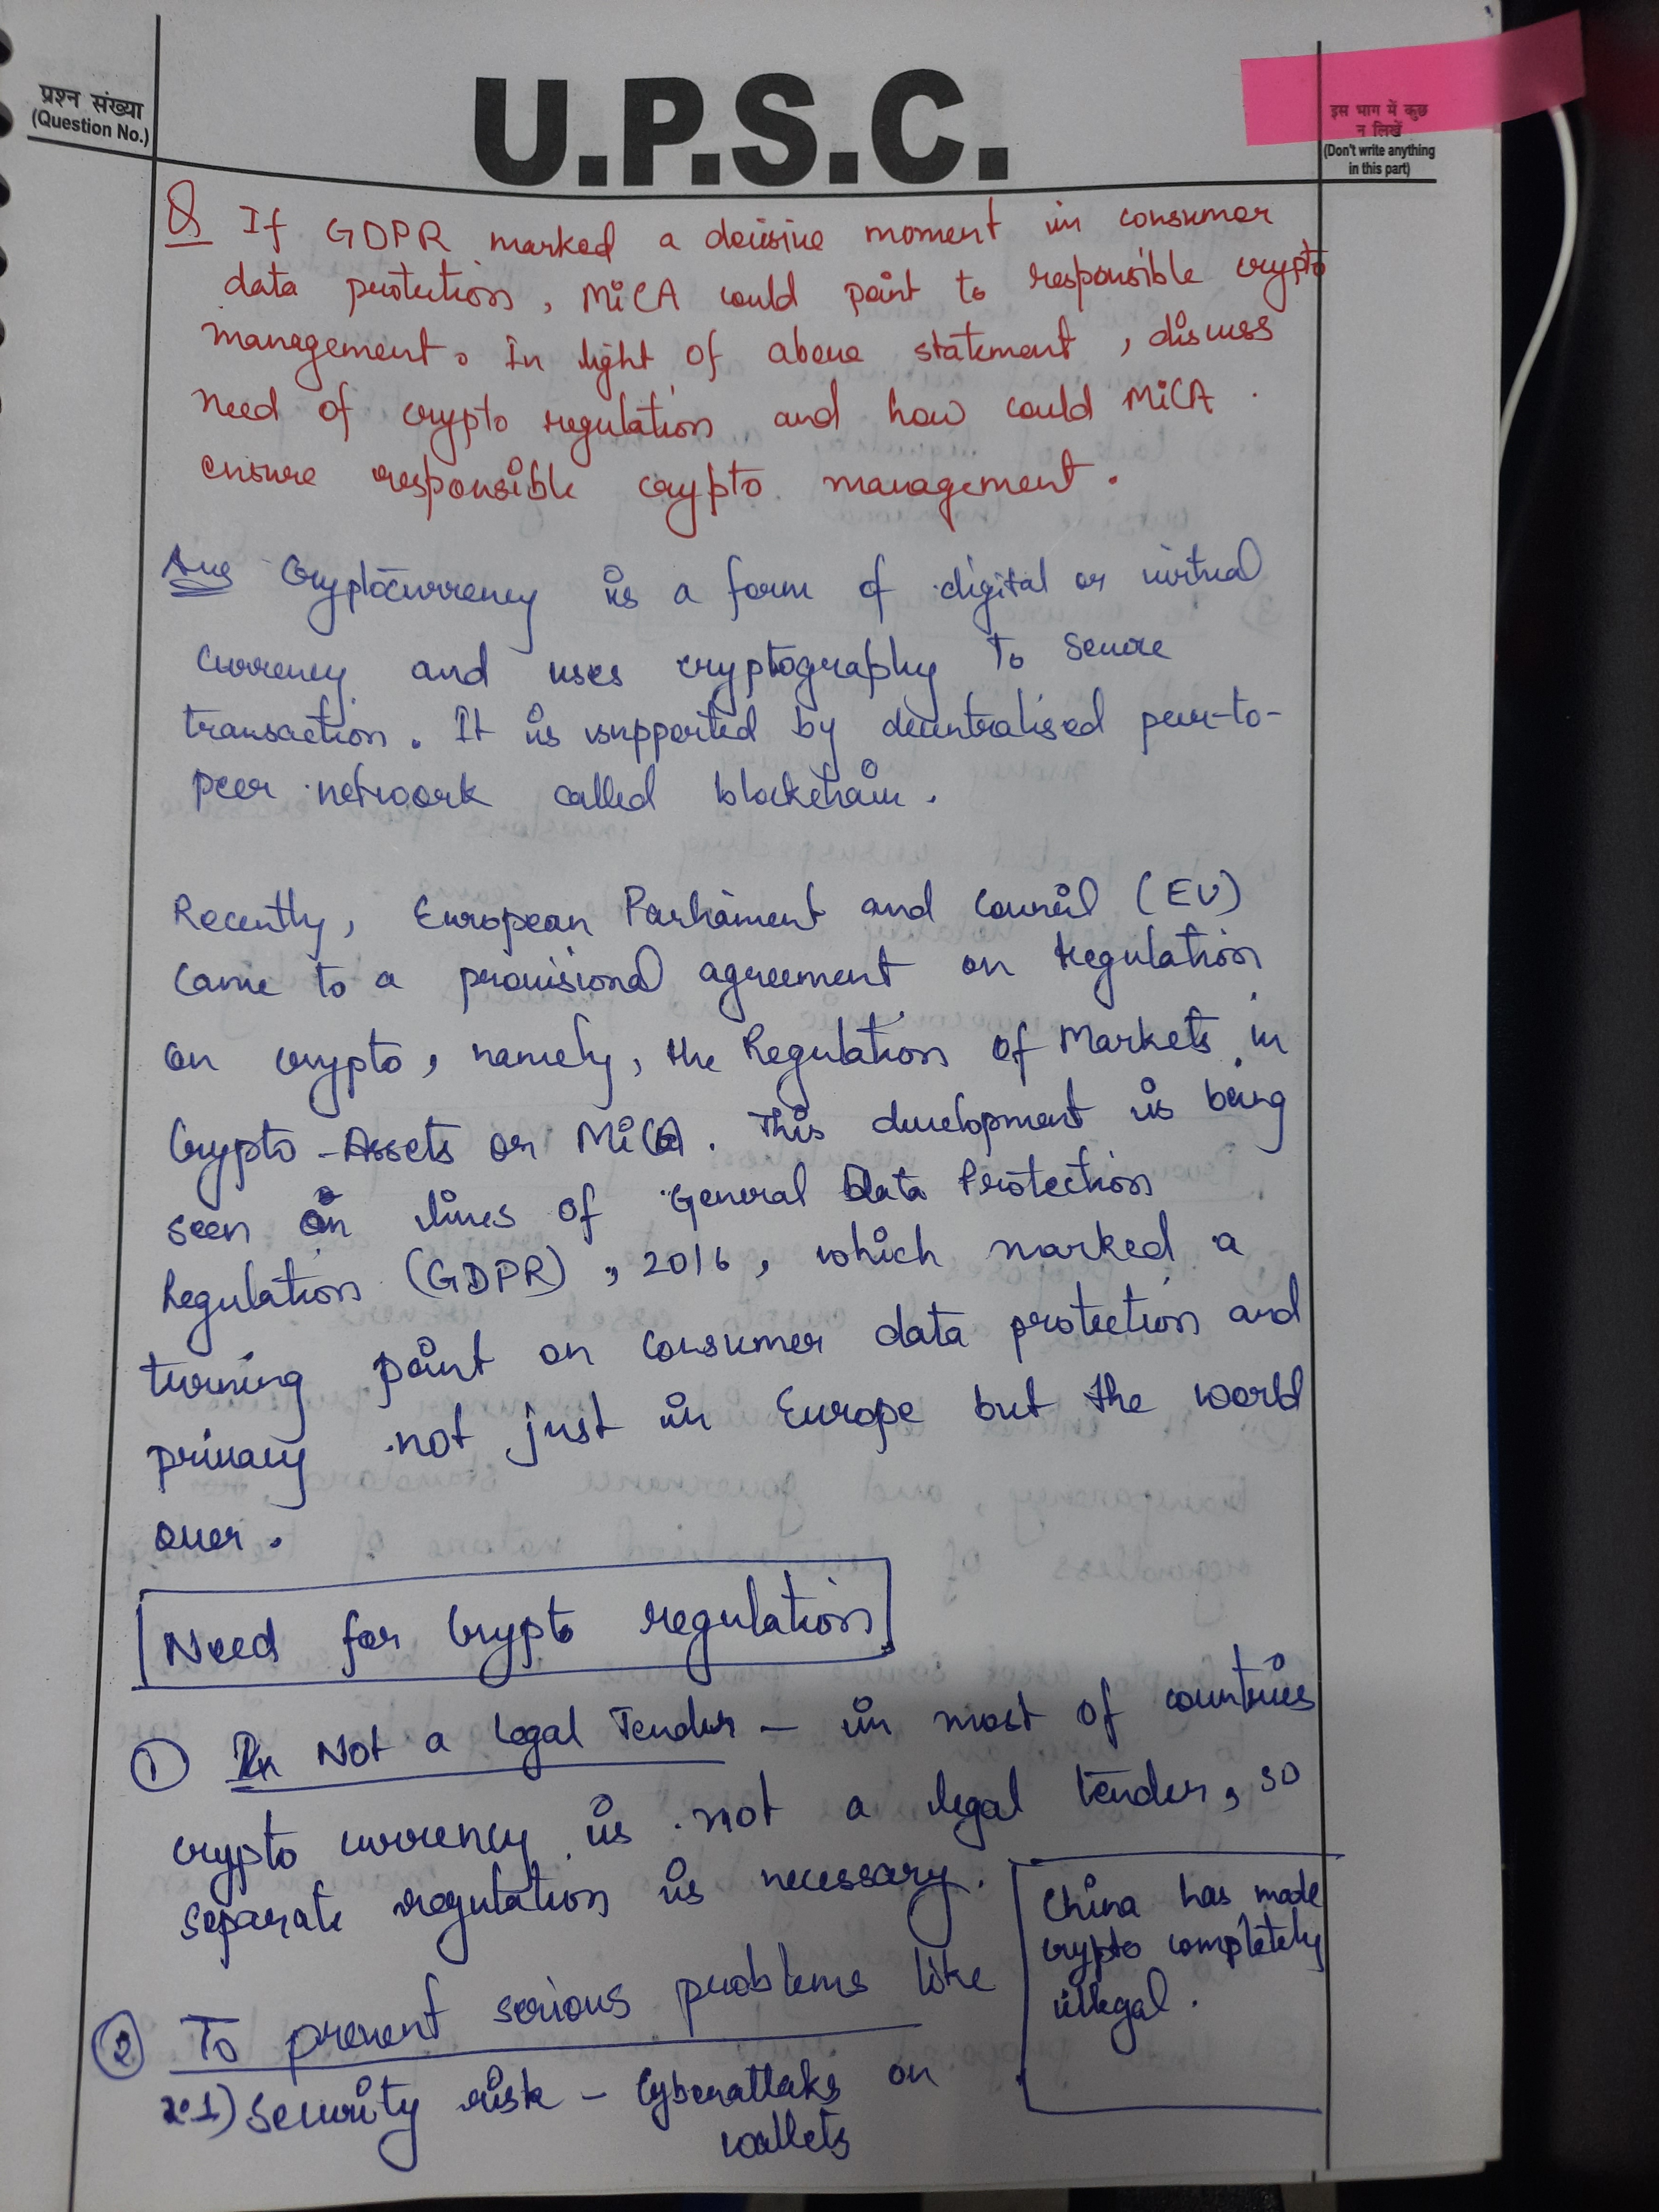 प्रश्न संख्या
(Question No.)
U.P.S.C.
इस भाग में कुछ
न लिखें
(Don't write anything
in this part)
Q If GDPR marked a decisive moment in consumer
data protection, MiCA could point to responsible crypto
management. In light of above statement, discuss
need of crypto regulation and how could MiCA
ensure responsible crypto management.
Ans Cryptocurrency is a form of digital or virtual
currency and uses cryptography to secure
transaction. It is supported by decentralised peer-to-
peer network called blockchain.
Recently, European Parliament and Council (EU)
came to a provisional agreement on regulation
on crypto, namely, the Regulation of Markets in
Crypto-Assets or MiCA. This development is being
seen on lines of General Data Protection
Regulation (GDPR), 2016, which marked a
turning point on consumer data protection and
privacy not just in Europe but the world
over.
Need for Crypto regulation
① Not a Legal Tender – in most of countries
crypto currency is not a legal tender, so
separate regulation is necessary.
China has made
crypto completely
illegal.
② To prevent serious problems like
2.1) Security risk – Cyberattaks on
wallets